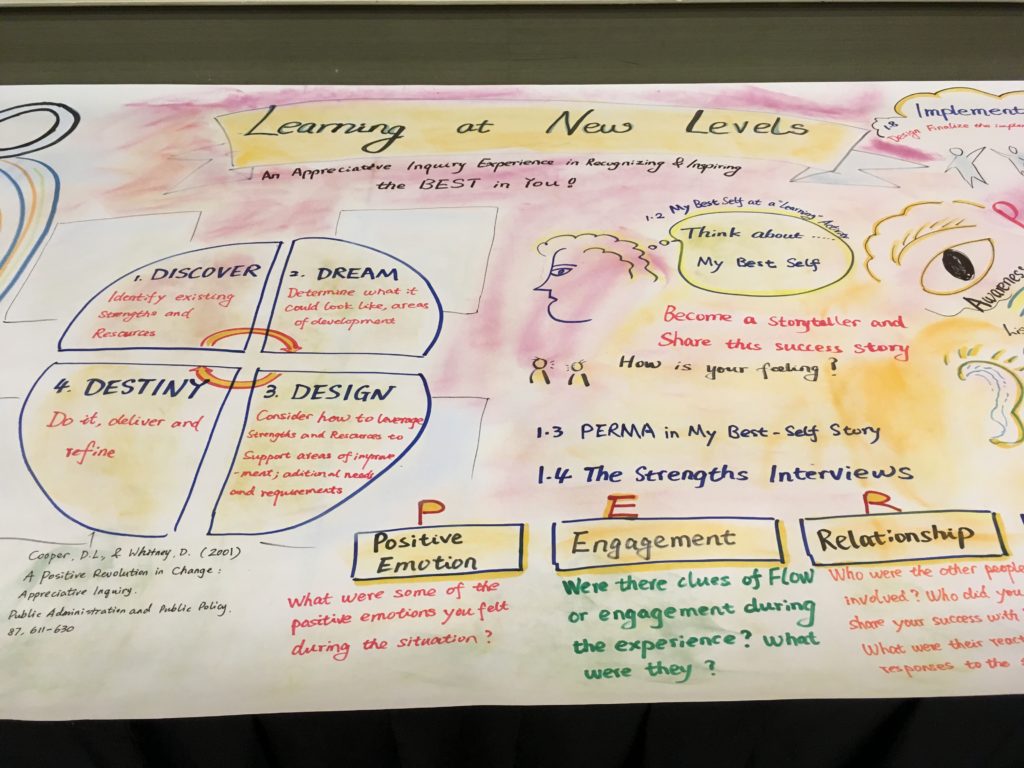 Learning at New Levels
An Appreciative Inquiry Experience in Recognizing & Inspiring
the BEST in You!
1. DISCOVER
Identify existing
Strengths and
Resources
2. DREAM
Determine what it
could look like, areas
of development
4. DESTINY
Do it, deliver and
refine
3. DESIGN
Consider how to leverage
Strengths and Resources to
Support areas of improve
-ment; aditional needs
and requirements
Cooper, D.L, & Whitney, D. (2001)
A Positive Revolution in Change:
Appreciative Inquiry.
Public Administration and Public Policy.
87, 611-630
1.2 My Best Self at a "Learning" Activity
Think about .....
My Best Self
Become a Storyteller and
Share this success story
How is your feeling?
1.3 PERMA in My Best-Self Story
1.4 The Strengths Interviews
P
Positive
Emotion
What were some of the
positive emotions you felt
during the situation?
E
Engagement
Were there clues of Flow
or engagement during
the experience? What
were they?
R
Relationship
Who were the other people
involved? Who did you
share your success with
What were their
responses to the
1.8
Implement
Design Finalize the
Awareness